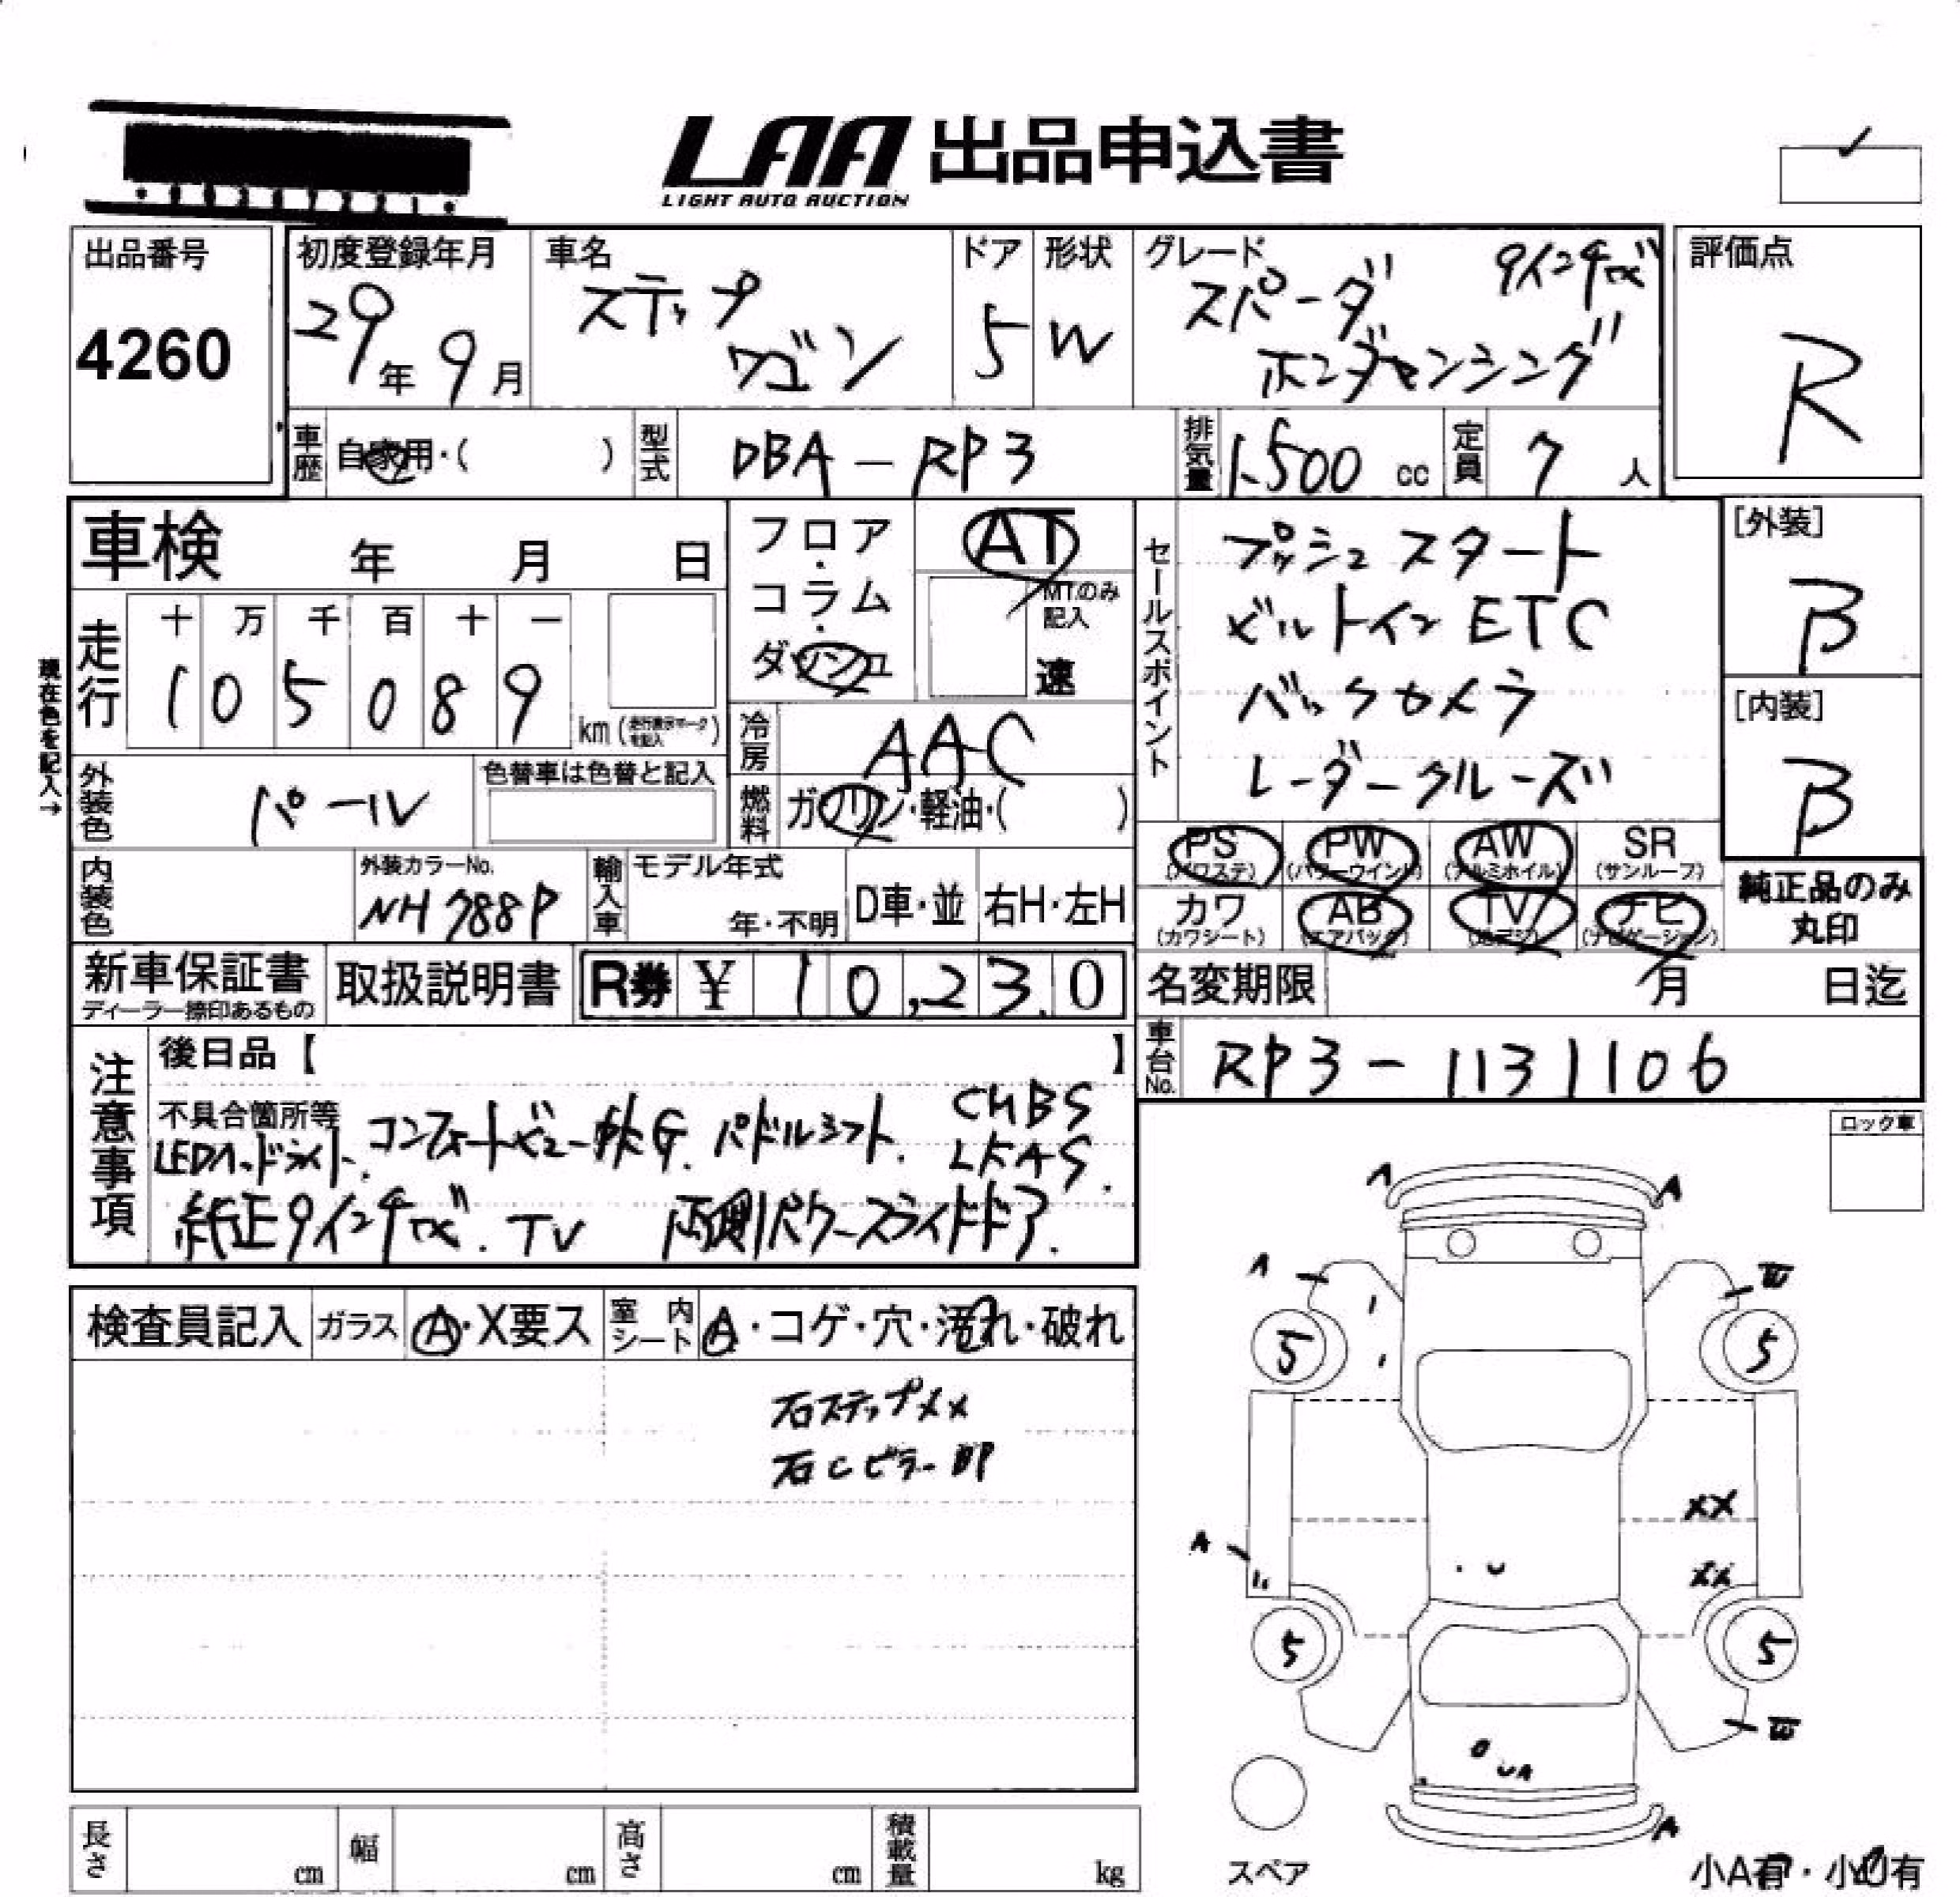 LAA 出品申込書
LIGHT AUTO AUCTION
出品番号
4260
初度登録年月
29年 9月
車名
ステップ
ワゴン
ドア
5
形状
W
グレード
スパーダ 9インチナビ
ホンダセンシング
評価点
R
車歴 自家用・( )
型式 DBA-RP3
排気量 1.500 cc
定員 7 人
車検 年 月 日
フロア・コラム・ダッシュ
AT
MTのみ記入
速
セールスポイント
プッシュスタート
ビルトインETC
バックカメラ
レーダークルーズ
[外装]
B
[内装]
B
現在色を記入→
走行
十 万 千 百 十 一
1 0 5 0 8 9
km(走行表示マークを記入)
冷房 AAC
外装色 パール
色替車は色替と記入
燃料 ガソリン・軽油・( )
PS (パワステ)
PW (パワーウインド)
AW (アルミホイル)
SR (サンルーフ)
カワ (カワシート)
AB (エアバック)
TV (地デジ)
ナビ (ナビゲーション)
純正品のみ
丸印
内装色
外装カラーNo.
NH788P
輸入車
モデル年式
年・不明
D車・並
右H・左H
新車保証書
ディーラー捺印あるもの
取扱説明書
R券 ¥ 10,230
名変期限 月 日迄
車台No. RP3-1131106
注意事項
後日品【 】
不具合箇所等
LEDヘッドライト. コンフォートビューPKG. パドルシフト. CMBS
LKAS.
純正9インチナビ. TV 両側パワースライドドア.
ロック車
検査員記入
ガラス A・X要ス
室内シート A・コゲ・穴・汚れ・破れ
右ステップXX
右Cピラー
A A
A W
5 5
XX
A XX
5 5
W
UA
A
スペア
小A有・小U有
長さ cm
幅 cm
高さ cm
積載量 kg